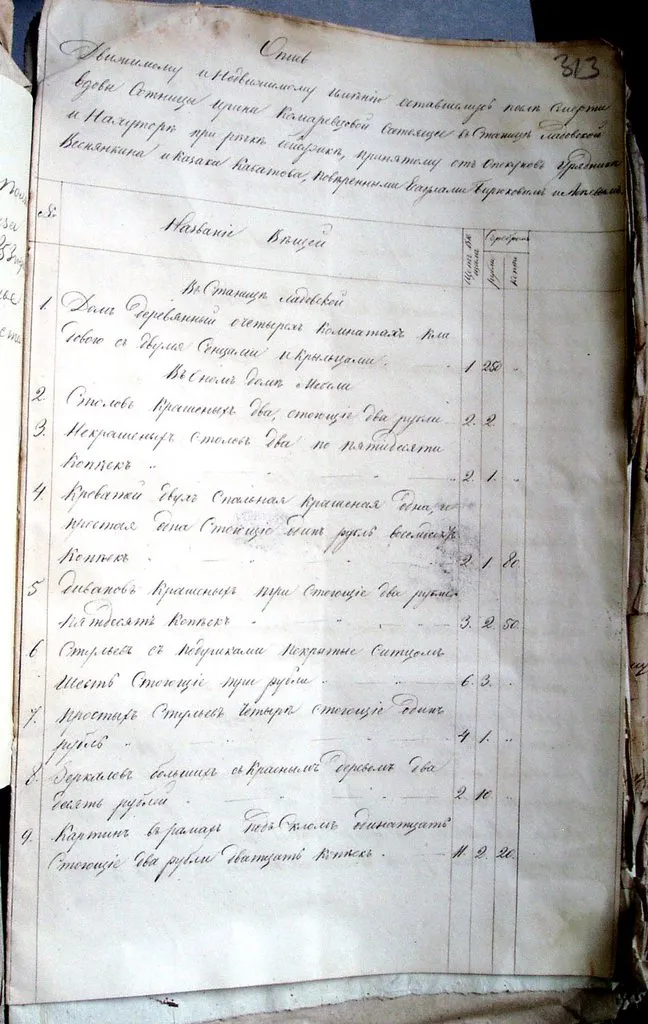 313
Опись
Движимому и Недвижимому имению оставшемуся после смерти
вдовы Сотницы Ирины Комаревцовой состоящее в Станице Ладовской
и На хуторе при речке Бейсужке, принятому от опекунов Урядника
Веснянкина и казака Кабатова, поверенными Бирюковым и
№
Название Вещей
Серебромъ
рубли
копе
Въ Станице Ладовской
1. Домъ Деревянный о четырехъ комнатахъ кла
довою съ двумя Сенцами и Крыльцами. 1 250
Въ ономъ доме мебели
2. Столовъ крашеныхъ два стоющiе два рубли 2. 2.
3. Некрашеныхъ столовъ два по пятидесяти
Копеекъ 2. 1.
4. Кроватей двухъ спальная крашеная одна и
простая одна стоющiе одинъ рубль восемдесятъ
Копеекъ 2 1 80
5 Дивановъ крашеныхъ три стоющiе два рубли
пятдесятъ Копеекъ 3. 2. 50
6 Стульевъ съ подушками покрытые ситцомъ
Шесть стоющiе три рубли 6. 3.
7. Простыхъ Стульевъ четыре стоющiе одинъ
рубль 4 1.
8. Зеркаловъ большихъ съ Краснымъ деревомъ два
десять рублей 2 10
9. Картинъ в рамахъ подъ Скломъ одинатцать
стоющiе два рубли дватцать Копеекъ. 11. 2. 20